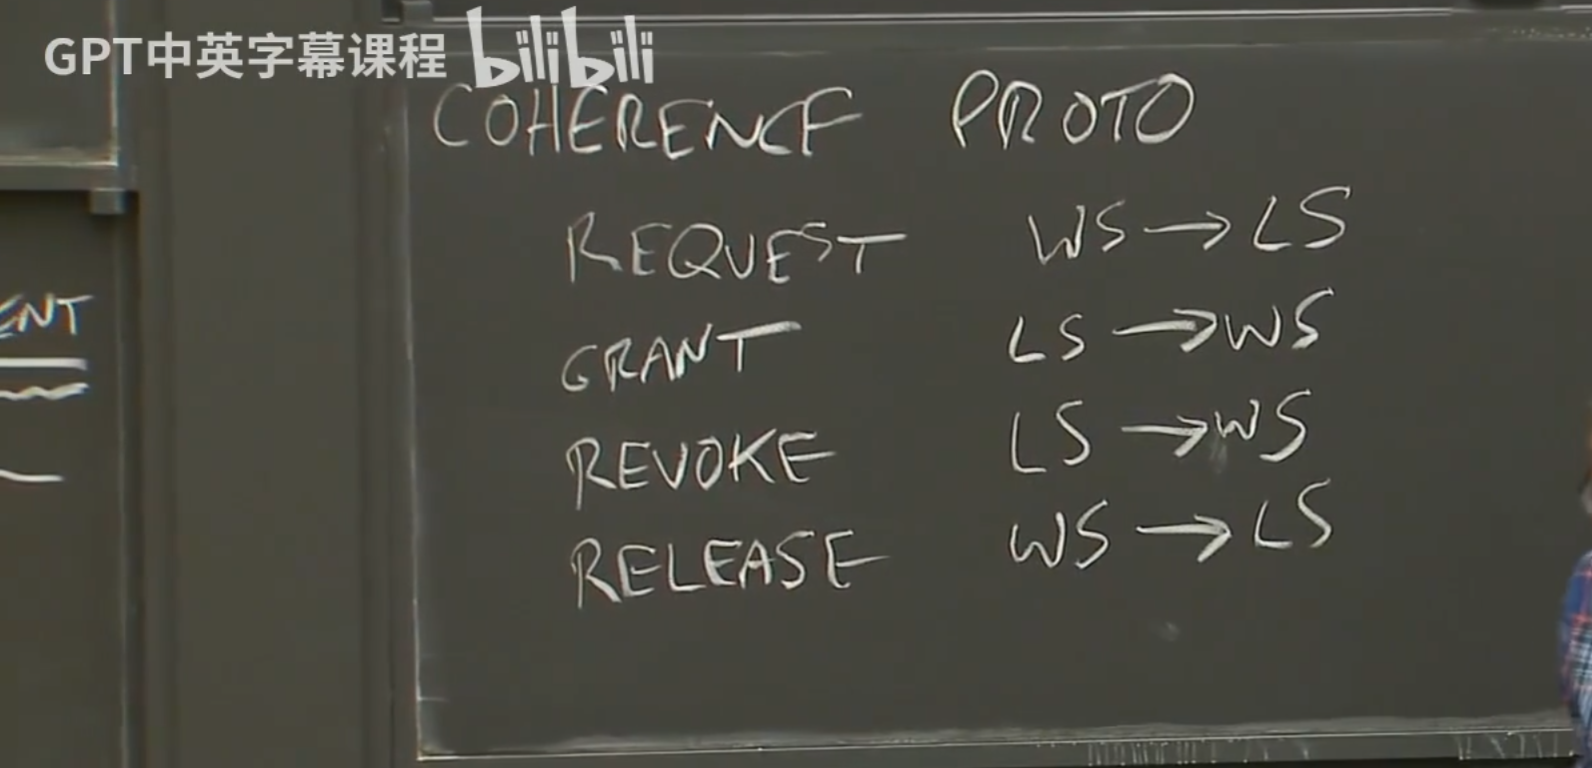 GPT中英字幕课程 bilibili
COHERENCE PROTO
REQUEST WS → LS
ENT
GRANT LS → WS
REVOKE LS → WS
RELEASE WS → LS